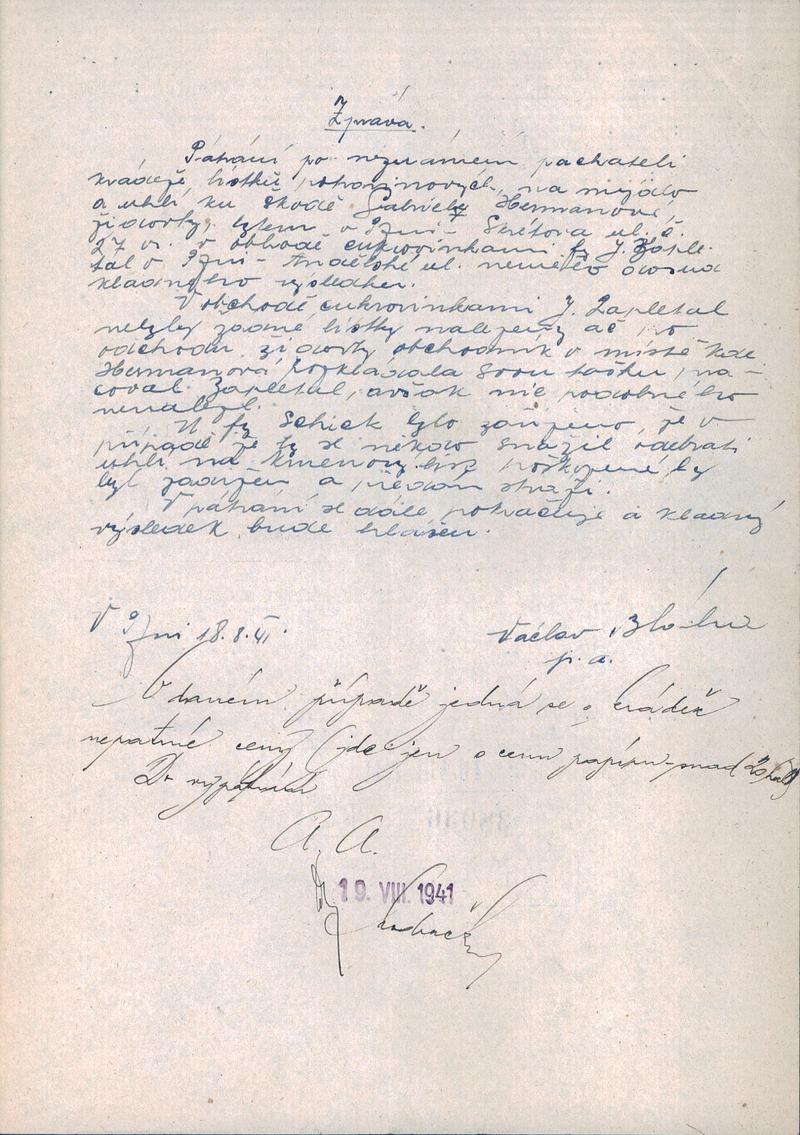 Zpráva.
Pátrání po neznámém pachateli
krádeže lístků potravinových, na mýdlo
a uhlí, ku škodě Gabriely Hermanové,
židovky, bytem v Plzni - Škrétova ul. č.
27 v obchodě cukrovinkami fy J. Zaple-
tal v Plzni - Andělské ul. nemělo dosud
kladného výsledku.
V obchodě cukrovinkami J. Zapletal
nebyly žádné lístky nalezeny ač po
odchodu židovky obchodník v místě kde
Hermanová rozkládala svou tašku, pra-
coval Zapletal, avšak nic podobného
nenalezl.
U fy Schick bylo zařízeno, že v
případě že by se někdo snažil odebrati
uhlí na kmenový list poškozené by
byl zadržen a předán stráži.
V pátrání se dále pokračuje a kladný
výsledek bude hlášen.
V Plzni 18.8.41.
Václav
p. a.
V daném případě jedná se o krádež
nepatrné ceny (jde jen o cenu papíru - snad 20 hal)
Do vypátrání
A. A.
19. VIII. 1941